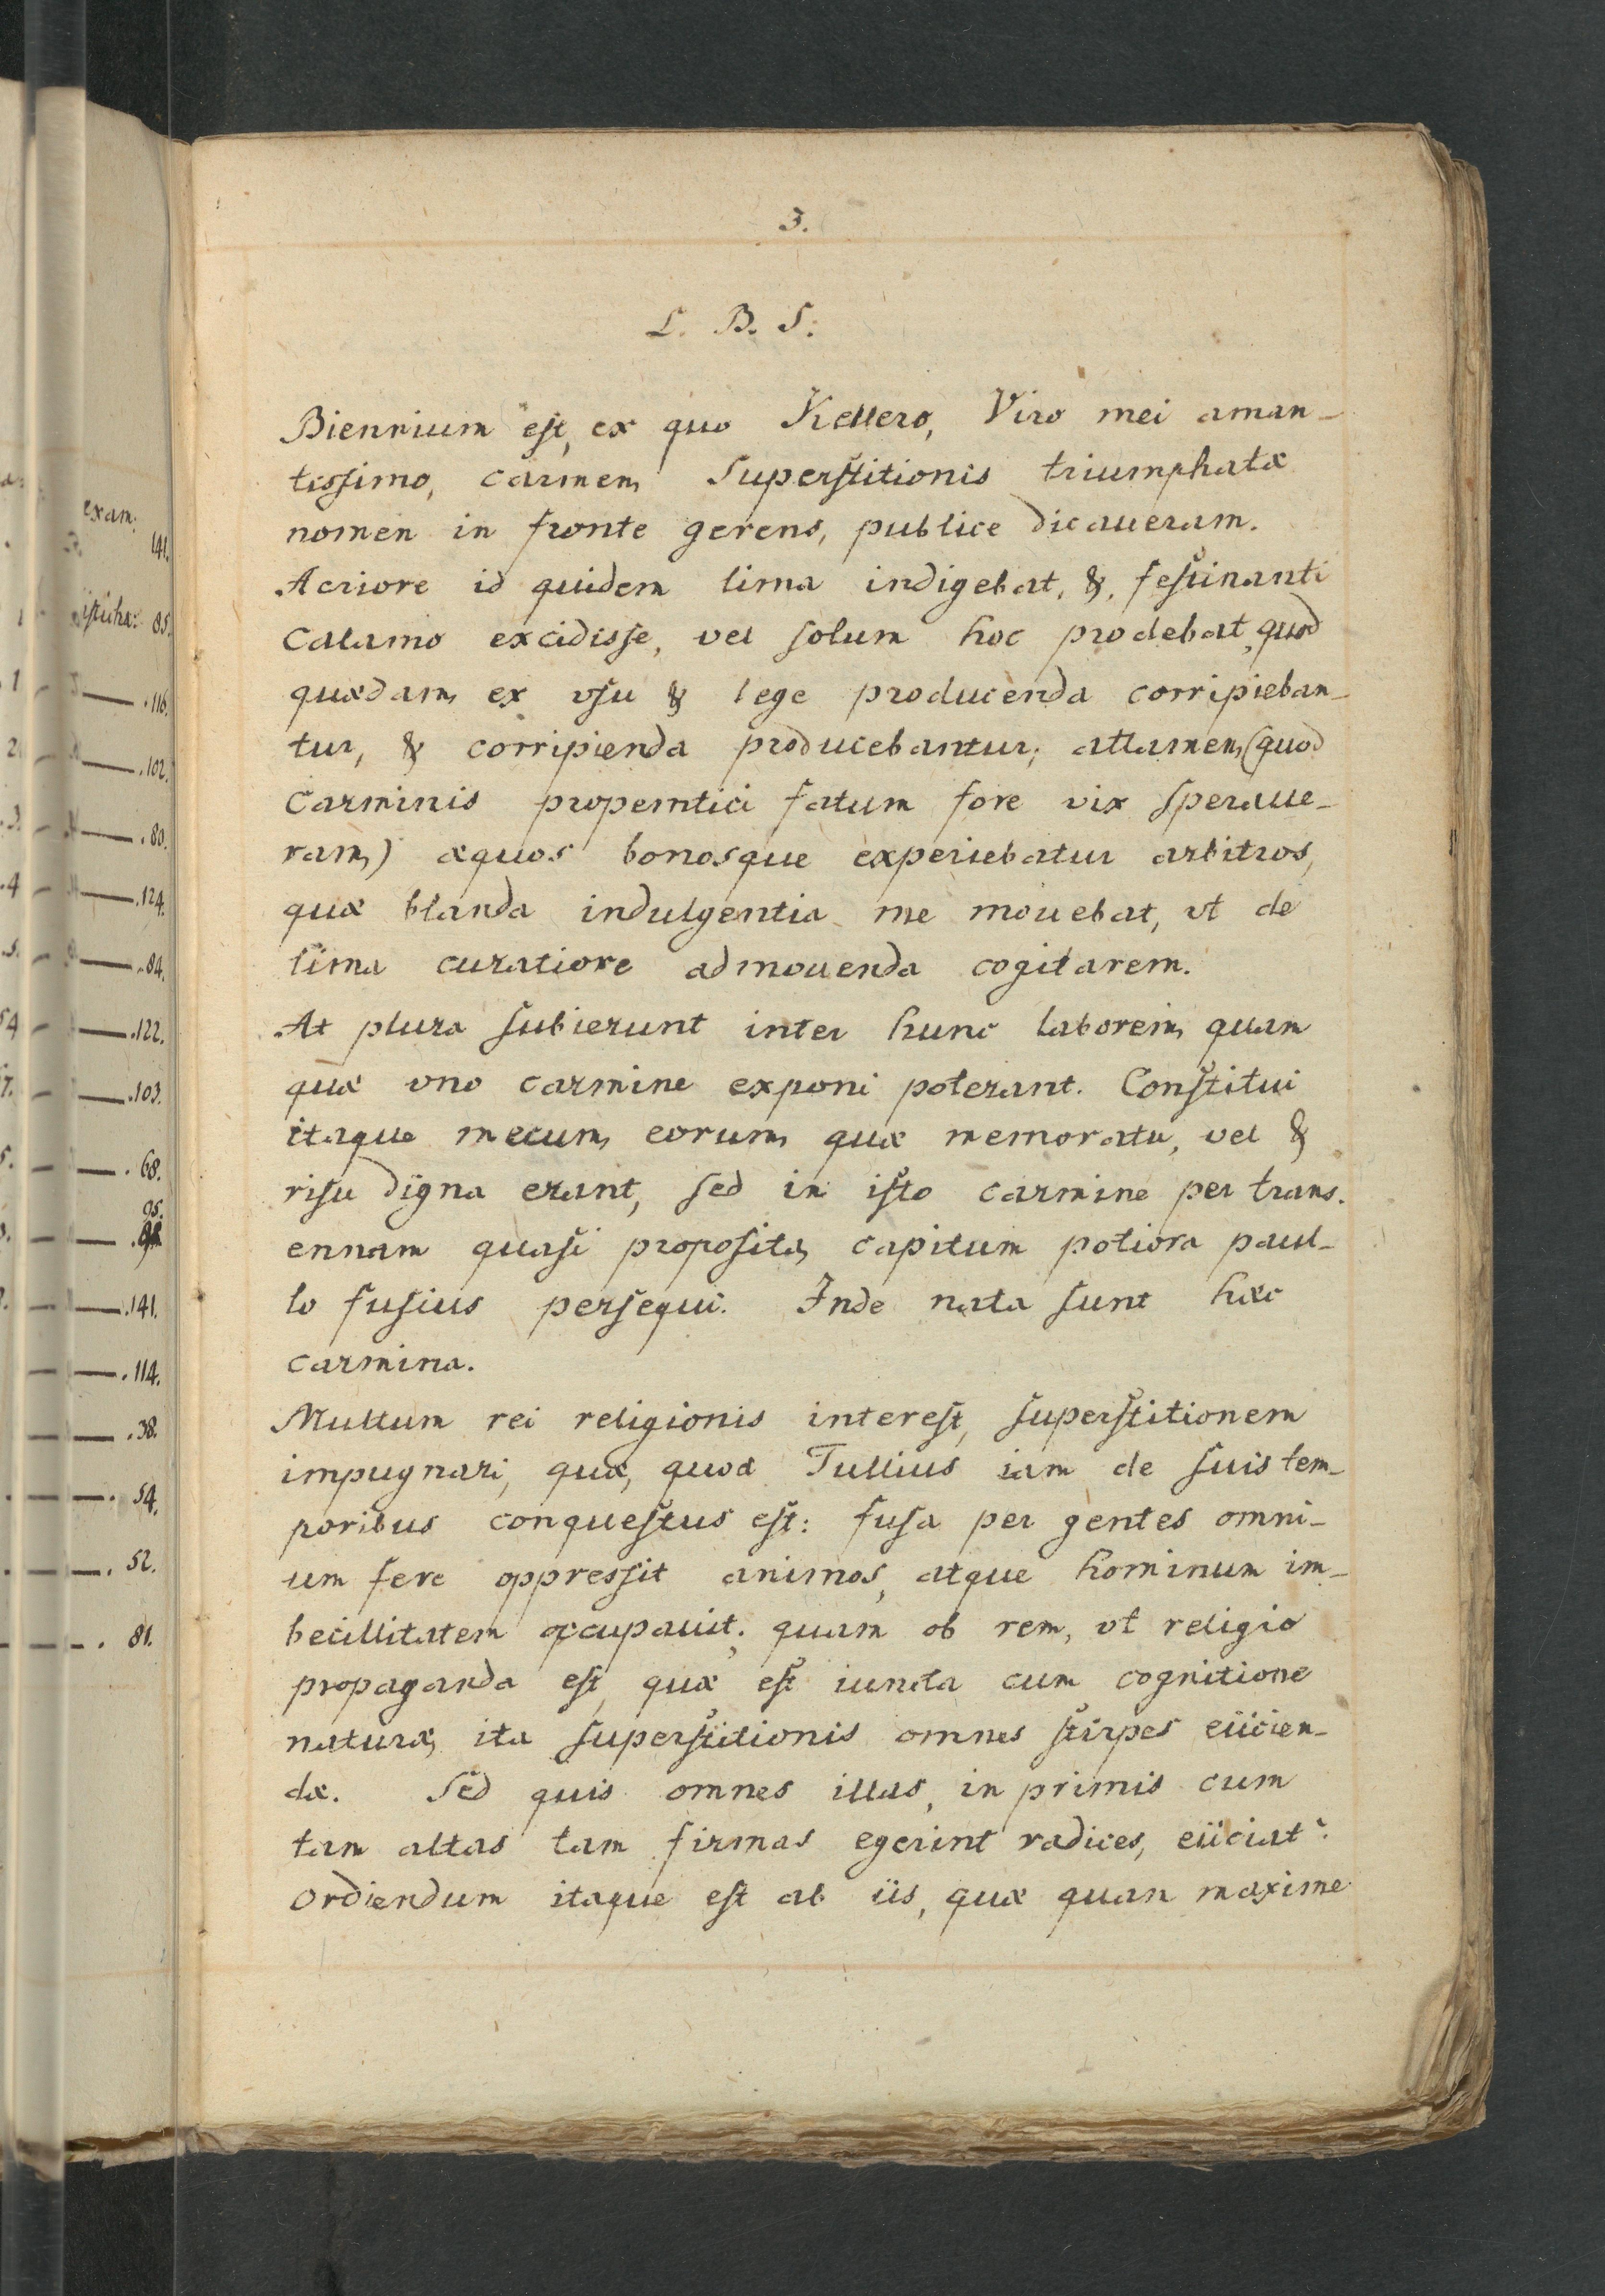 3.
L. B. S.
Biennium est, ex quo Kellero, Viro mei aman-
tissimo, carmen, Superstitionis triumphatæ
nomen in fronte gerens, publice dicaueram.
Acriore id quidem lima indigebat, &, festinanti
calamo excidisse, vel solum hoc prodebat, quod
quædam, ex vsu & lege producenda corripieban-
tur, & corripienda producebantur; attamen, (quod
Carminis propemtici fatum fore vix speraue-
ram,) æquos bonosque experiebatur arbitros,
quæ blanda indulgentia me mouebat, vt de
lima curatiore admouenda cogitarem.
At plura subierunt inter hunc laborem, quam
quæ vno carmine exponi poterant. Constitui
itaque mecum, eorum, quæ memoratu, vel &
risu digna erant, sed in isto carmine per trans-
ennam quasi proposita, capitum potiora paul-
lo fusius persequi. Inde nata sunt hæc
carmina.
Multum rei religionis interest, superstitionem
impugnari, quæ, quod Tullius iam de suis tem-
poribus conquestus est: fusa per gentes omni-
um fere oppressit animos, atque hominum im-
becillitatem occupauit; quam ob rem, vt religio
propaganda est, quæ est iuncta cum cognitione
naturæ, ita superstitionis omnes stirpes eiicien-
dæ. Sed quis omnes illas, in primis cum
tam altas tam firmas egerint radices, eiiciat?
Ordiendum itaque est ab iis, quæ quan maxime
exam:
141.
85.
116.
102.
80.
124.
84.
122.
103.
68.
95.
141.
114.
38.
54.
52.
81.